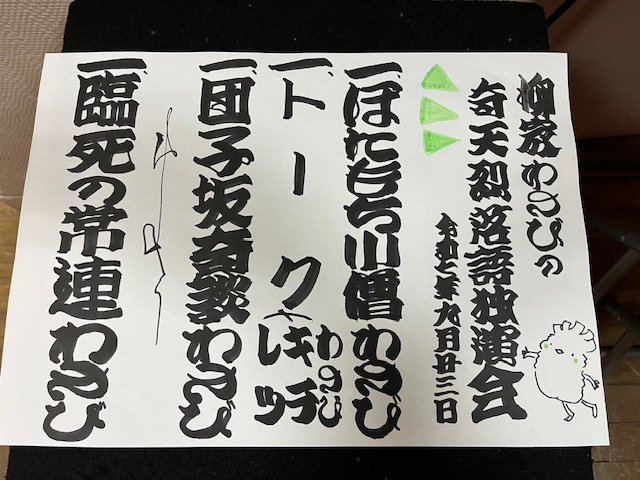 柳家わさびの
奇天烈落語独演会
令和七年九月廿二日
一、ぼたもち小僧 わさび
一、トーク（わさび
キテ
レツ
一、団子坂奇談 わさび
一、臨死の常連 わさび